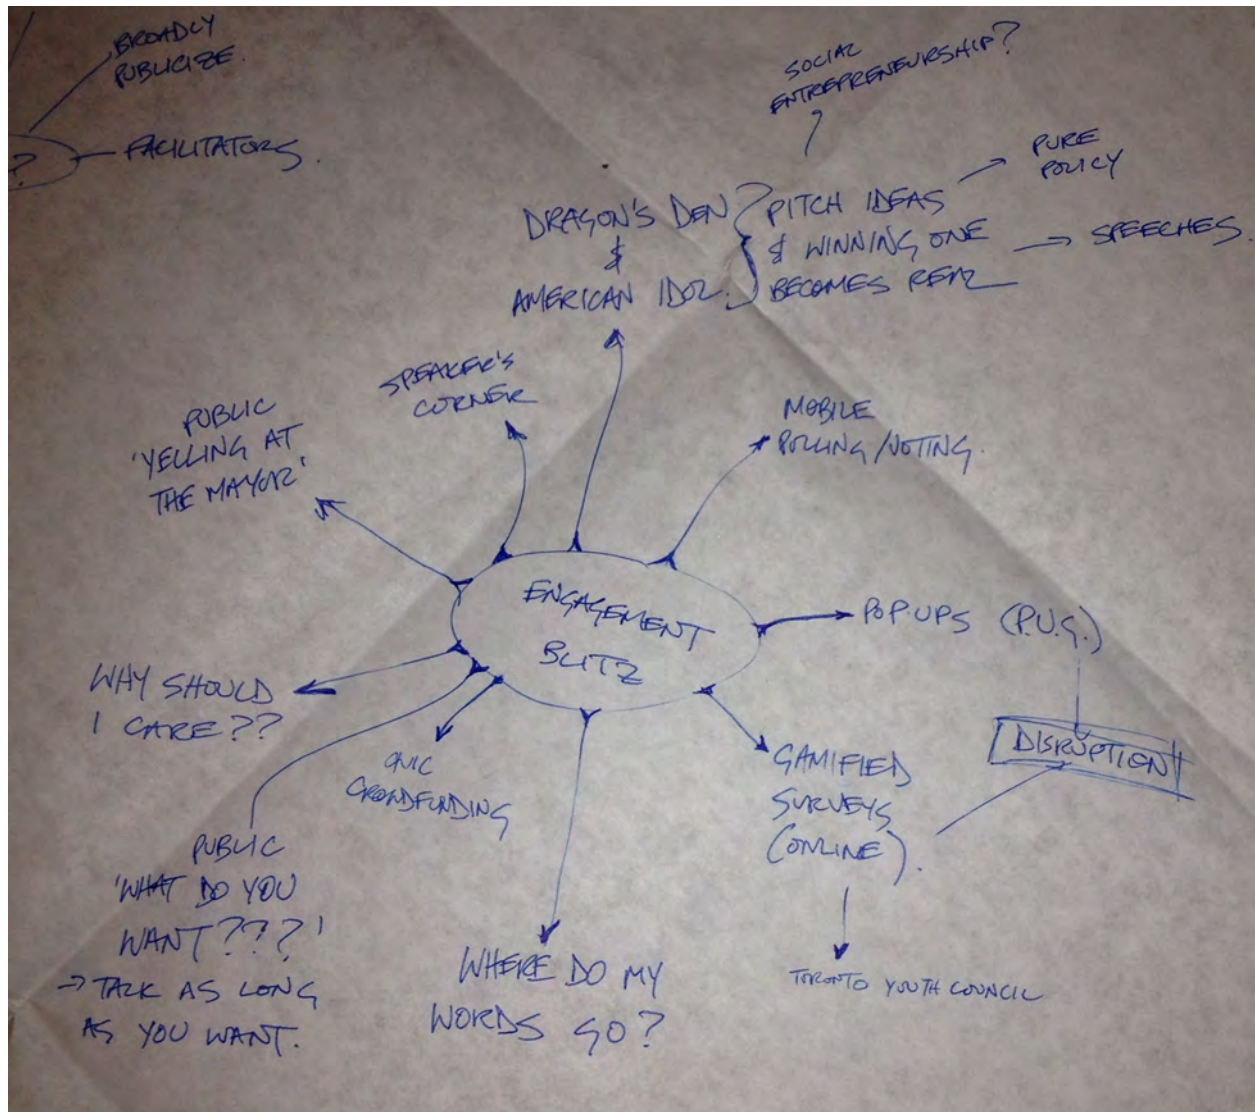 BROADLY
PUBLICIZE.
?
FACILITATORS.
SOCIAL
ENTREPRENEURSHIP?
?
DRAGON'S DEN
&
AMERICAN IDOL.
PITCH IDEAS
& WINNING ONE
BECOMES REAL
PURE
POLICY
SPEECHES.
SPEAKER'S
CORNER
PUBLIC
'YELLING AT
THE MAYOR'
MOBILE
POLLING/VOTING.
ENGAGEMENT
BLITZ
POP-UPS (P.U.G.)
DISRUPTION
WHY SHOULD
I CARE??
CIVIC
CROWDFUNDING
GAMIFIED
SURVEYS
(ONLINE).
TORONTO YOUTH COUNCIL
PUBLIC
'WHAT DO YOU
WANT???'
→ TALK AS LONG
AS YOU WANT.
WHERE DO MY
WORDS GO?